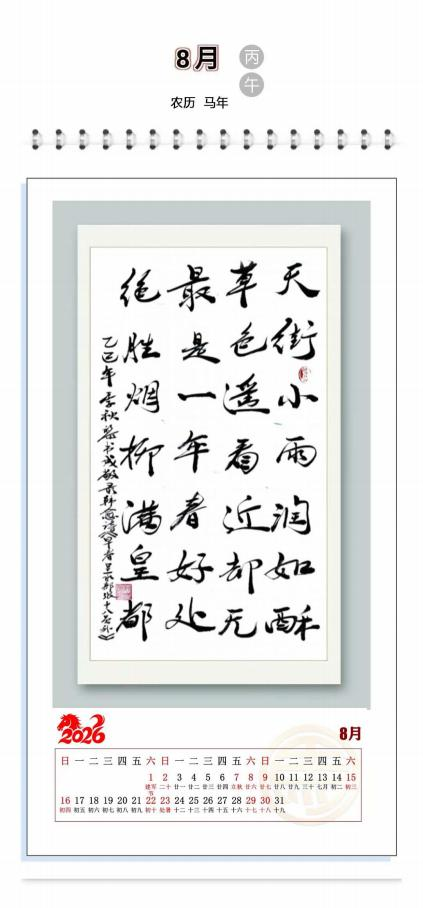 8月
丙
午
农历 马年
天街小雨润如酥
草色遥看近却无
最是一年春好处
绝胜烟柳满皇都
2026
8月
日 一 二 三 四 五 六 日 一 二 三 四 五 六 日 一 二 三 四 五 六
1 2 3 4 5 6 7 8 9 10 11 12 13 14 15
建军节 二十 廿一 廿二 廿三 廿四 立秋 廿六 廿七 廿八 廿九 三十 七月 初二 初三
16 17 18 19 20 21 22 23 24 25 26 27 28 29 30 31
初四 初五 初六 初七 初八 初九 初十 处暑 十二 十三 十四 十五 十六 十七 十八 十九